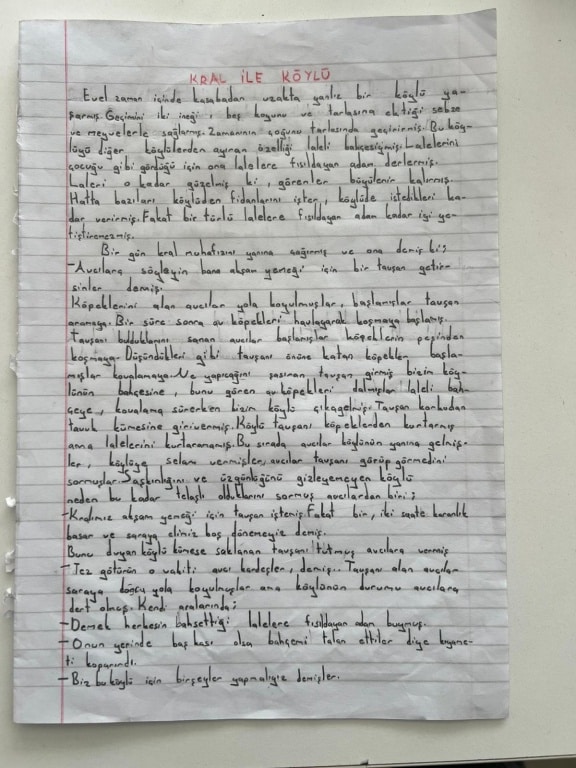 KRAL İLE KÖYLÜ
Evel zaman içinde kasabadan uzakta yanlız bir köylü ya-
şarmış. Geçimini iki ineği, beş koyunu ve tarlasına ektiği sebze
ve meyvelerle sağlarmış. Zamanının çoğunu tarlasında geçirirmiş. Bu köy-
lüyü diğer köylülerden ayıran özelliği laleli bahçesiymiş. Lalelerini
çocuğu gibi gördüğü için ona lalelere fısıldayan adam derlermiş.
Laleri o kadar güzelmiş ki, görenler büyülenir kalırmış.
Hatta bazıları köylüden fidanlarını ister, köylüde istedikleri ka-
dar verirmiş. Fakat bir türlü lalelere fısıldayan adam kadar iyi ye-
tiştiremezmiş.
Bir gün kral muhafızını yanına çağırmış ve ona demiş ki;
-Avcılara söyleyin bana akşam yemeği için bir tavşan getir-
sinler demiş.
Köpeklerini alan avcılar yola koyulmuşlar, başlamışlar tavşan
aramaya. Bir süre sonra av köpekleri havlayarak koşmaya başlamış.
Tavşanı bulduklarını sanan avcılar başlamışlar köpeklerin peşinden
koşmaya. Düşündükleri gibi tavşanı önüne katan köpekler başla-
mışlar kovalamaya. Ne yapıcağını şaşıran tavşan girmiş bizim köy-
lünün bahçesine, bunu gören av köpekleri dalmışlar laleli bah-
çeye, kovalama sürerken bizim köylü çıkagelmiş. Tavşan korkudan
tavuk kümesine girivermiş. Köylü tavşanı köpeklerden kurtarmış
ama lalelerini kurtaramamış. Bu sırada avcılar köylünün yanına gelmiş-
ler, köylüye selam vermişler, avcılar tavşanı görüp görmedini
sormuşlar. Şaşkınlığını ve üzgünlüğünü gizleyemeyen köylü
neden bu kadar telaşlı olduklarını sormuş avcılardan biri;
-Kralımız akşam yemeği için tavşan istemiş. Fakat bir, iki saate karanlık
basar ve saraya elimiz boş dönemeyiz demiş.
Bunu duyan köylü kümese saklanan tavşanı tutmuş avcılara vermiş
-Tez götürün o vakiti avcı kardeşler, demiş. Tavşanı alan avcılar
saraya doğru yola koyulmuşlar ama köylünün durumu avcılara
dert olmuş. Kendi aralarında;
-Demek herkesin bahsettiği lalelere fısıldayan adam buymuş.
-Onun yerinde başkası olsa bahçemi talan ettiler diye kıyame-
ti koparırdı.
-Biz bu köylü için birşeyler yapmalıyız demişler.